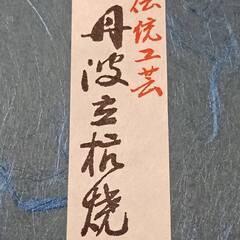 伝統工芸
丹波立杭焼